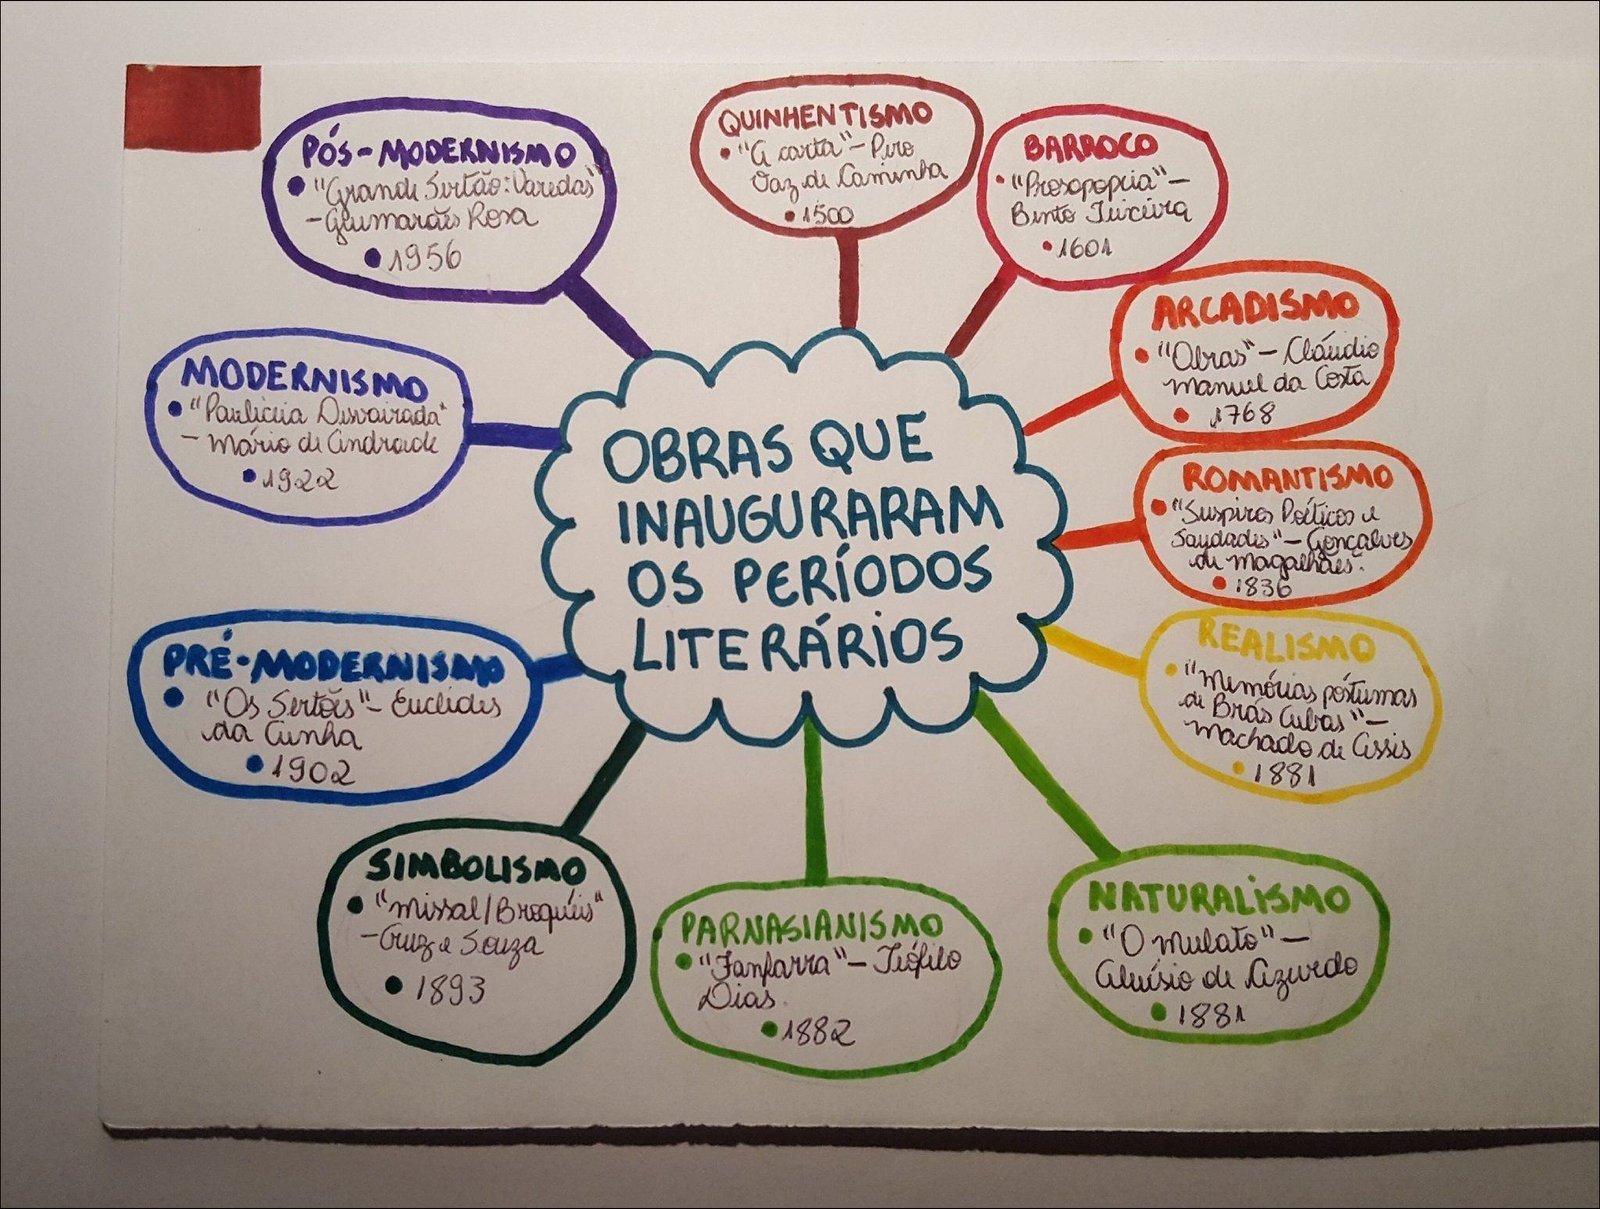 OBRAS QUE
INAUGURARAM
OS PERÍODOS
LITERÁRIOS
QUINHENTISMO
• "A carta" - Pero
Vaz de Caminha
• 1500
BARROCO
• "Prosopopeia" -
Bento Teixeira
• 1601
ARCADISMO
• "Obras" - Cláudio
Manuel da Costa
• 1768
ROMANTISMO
• "Suspiros Poéticos e
Saudades" - Gonçalves
de Magalhães.
• 1836
REALISMO
• "Memórias póstumas
de Brás Cubas" -
Machado de Assis
• 1881
NATURALISMO
• "O Mulato" -
Aluísio de Azevedo
• 1881
PARNASIANISMO
• "Fanfarra" - Teófilo
Dias.
• 1882
SIMBOLISMO
• "Missal/Broquéis"
- Cruz e Souza
• 1893
PRÉ-MODERNISMO
• "Os Sertões" - Euclides
da Cunha
• 1902
MODERNISMO
• "Pauliceia Desvairada"
- Mário de Andrade
• 1922
PÓS-MODERNISMO
• "Grande Sertão: Veredas"
- Guimarães Rosa
• 1956